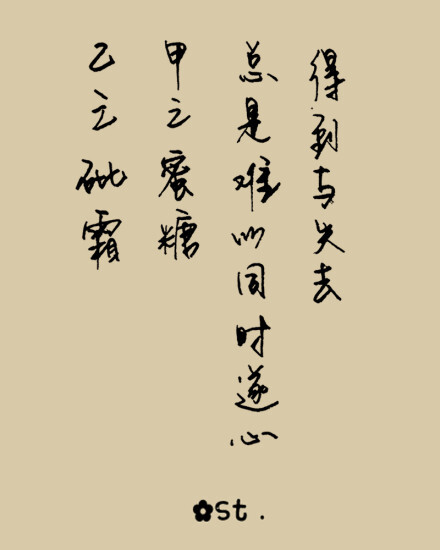 得到与失去
总是难以同时遂心
甲之蜜糖
乙之砒霜
✿st.